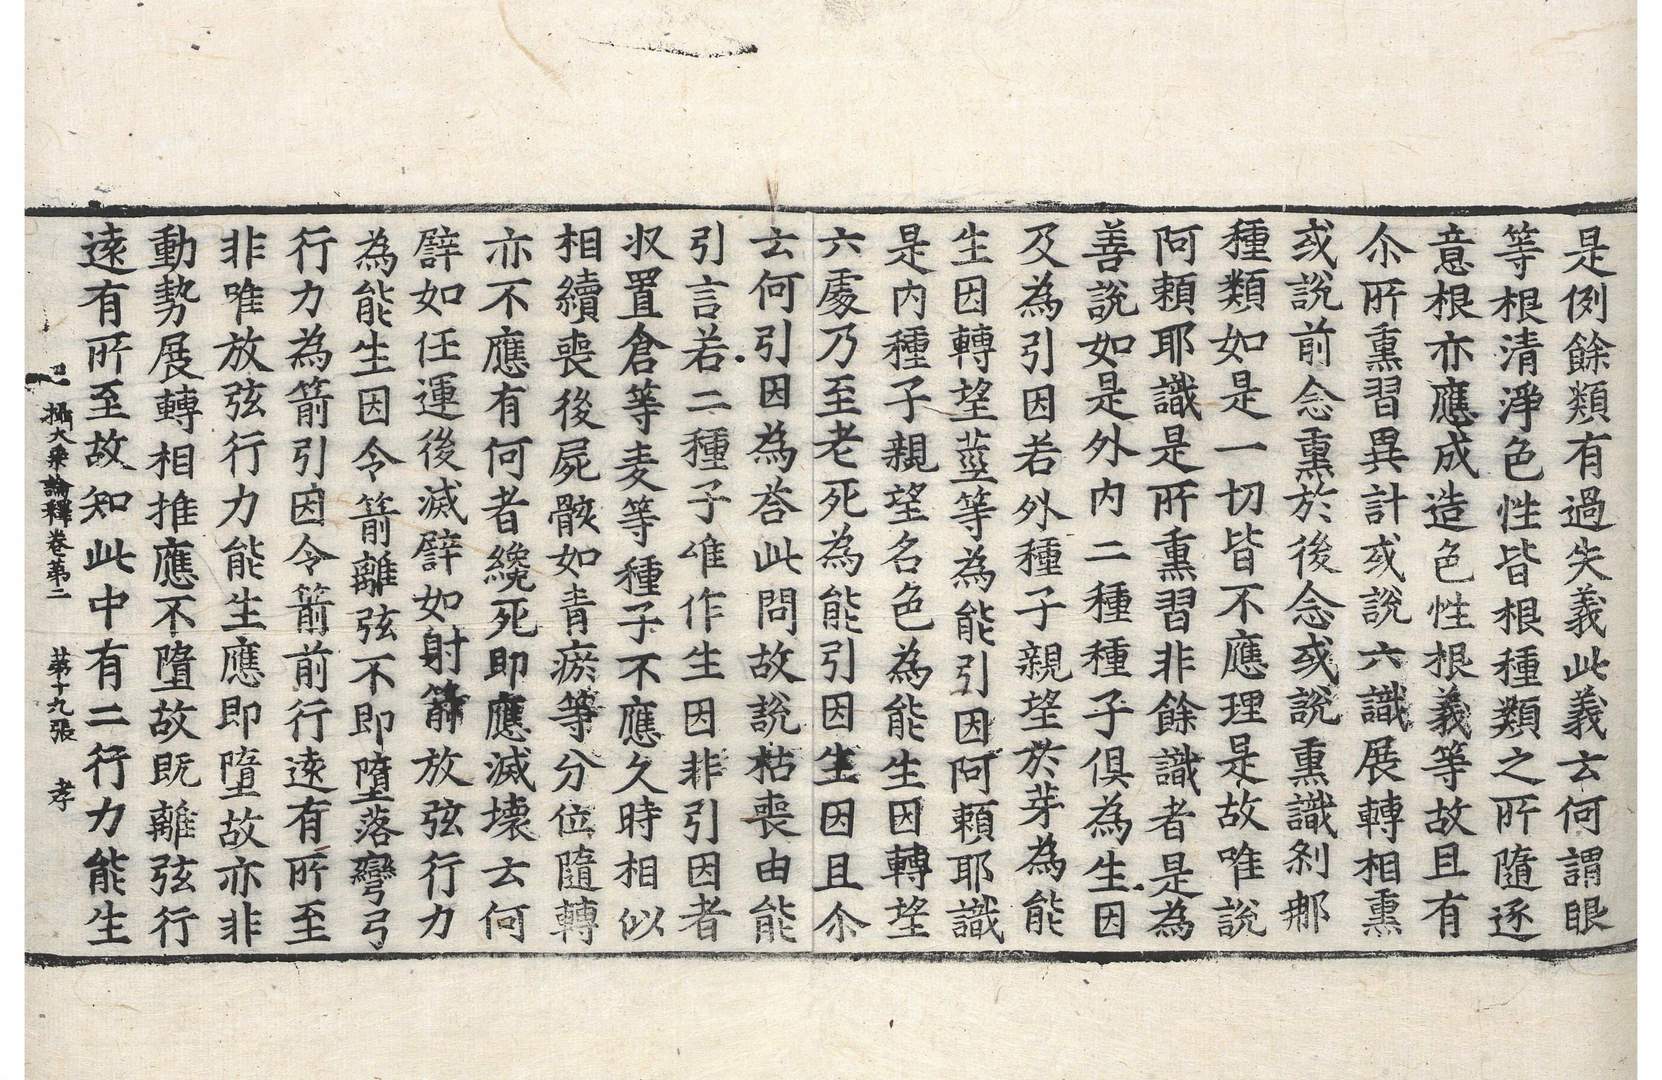 是例餘類有過失義此義云何謂眼
等根清淨色性皆根種類之所隨逐
意根亦應成造色性根義等故且有
尒所熏習異計或說六識展轉相熏
或說前念熏於後念或說熏識剎那
種類如是一切皆不應理是故唯說
阿賴耶識是所熏習非餘識者是為
善說如是外內二種種子俱為生因
及為引因若外種子親望於芽為能
生因轉望莖等為能引因阿賴耶識
是內種子親望名色為能生因轉望
六處乃至老死為能引因生因且尒
云何引因為荅此問故說枯喪由能
引言若二種子唯作生因非引因者
収置倉等麦等種子不應久時相似
相續喪後屍骸如青瘀等分位隨轉
亦不應有何者纔死即應滅壞云何
譬如任運後滅譬如射箭放弦行力
為能生因令箭離弦不即墮落彎弓
行力為箭引因令箭前行遠有所至
非唯放弦行力能生應即墮故亦非
動勢展轉相推應不墮故既離弦行
遠有所至故知此中有二行力能生
攝大乘論釋卷第二　第十九張　孝